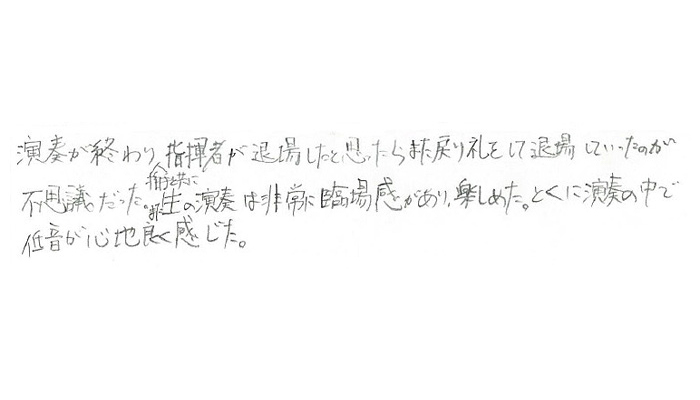 演奏が終わり、指揮者が退場したと思ったらまた戻り礼をして退場していったのが
不思議だった。また生の演奏は非常に臨場感があり、楽しめた。とくに演奏の中で
低音が心地良く感じた。